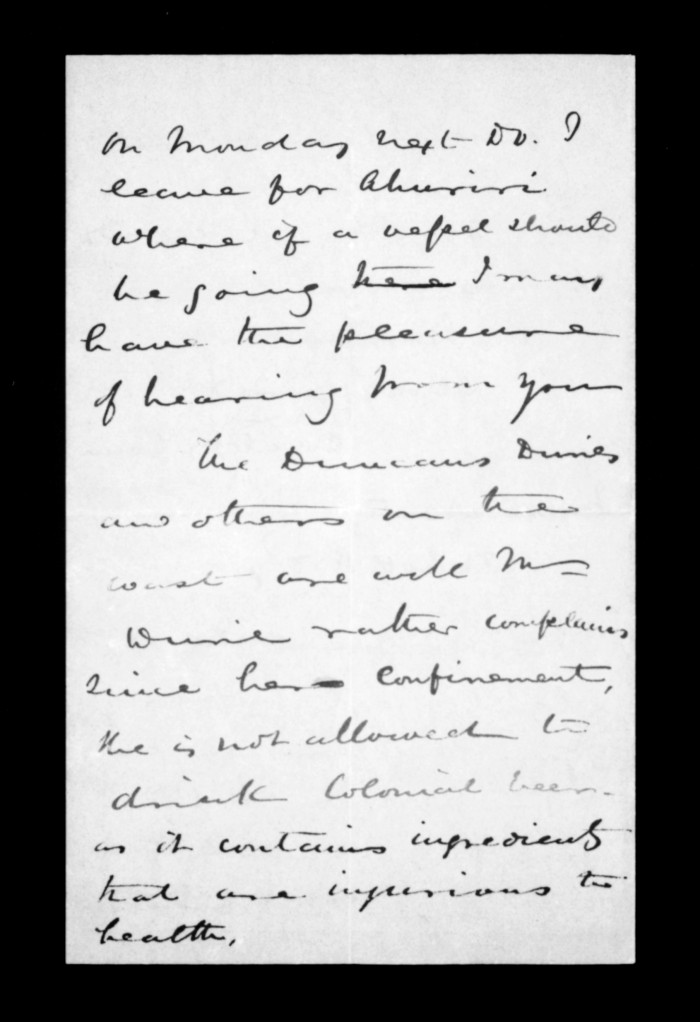 On Monday next D.V. I
leave for Ahuriri
where if a vessel should
be going here I may
have the pleasure
of hearing from you
The Duncans Duries
and others on the
coast are well Mrs
Durie rather complains
since her confinement,
she is not allowed to
drink Colonial beer
as it contains ingredients
that are injurious to
health,